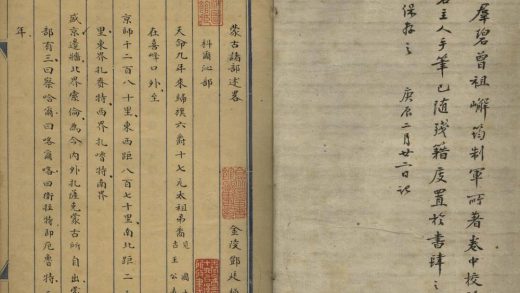 羣碧曾祖嶰筠制軍所著卷中校
主人手筆已隨殘籍庋置於書肆之
保存之 庚辰二月廿二日記
金陵鄧廷
蒙古諸部述畧
科爾沁部
天命九年來歸 六爵十七元太祖弟裔
在喜峰口外至
京師千二百八十里東西距八百七十里南北距二
里東界扎賚特西界扎嚕特南界
盛京邊牆北界索倫為今內外扎薩克蒙古所自出蒙
部有三曰察哈爾曰喀爾喀曰衛拉特即厄魯特
年